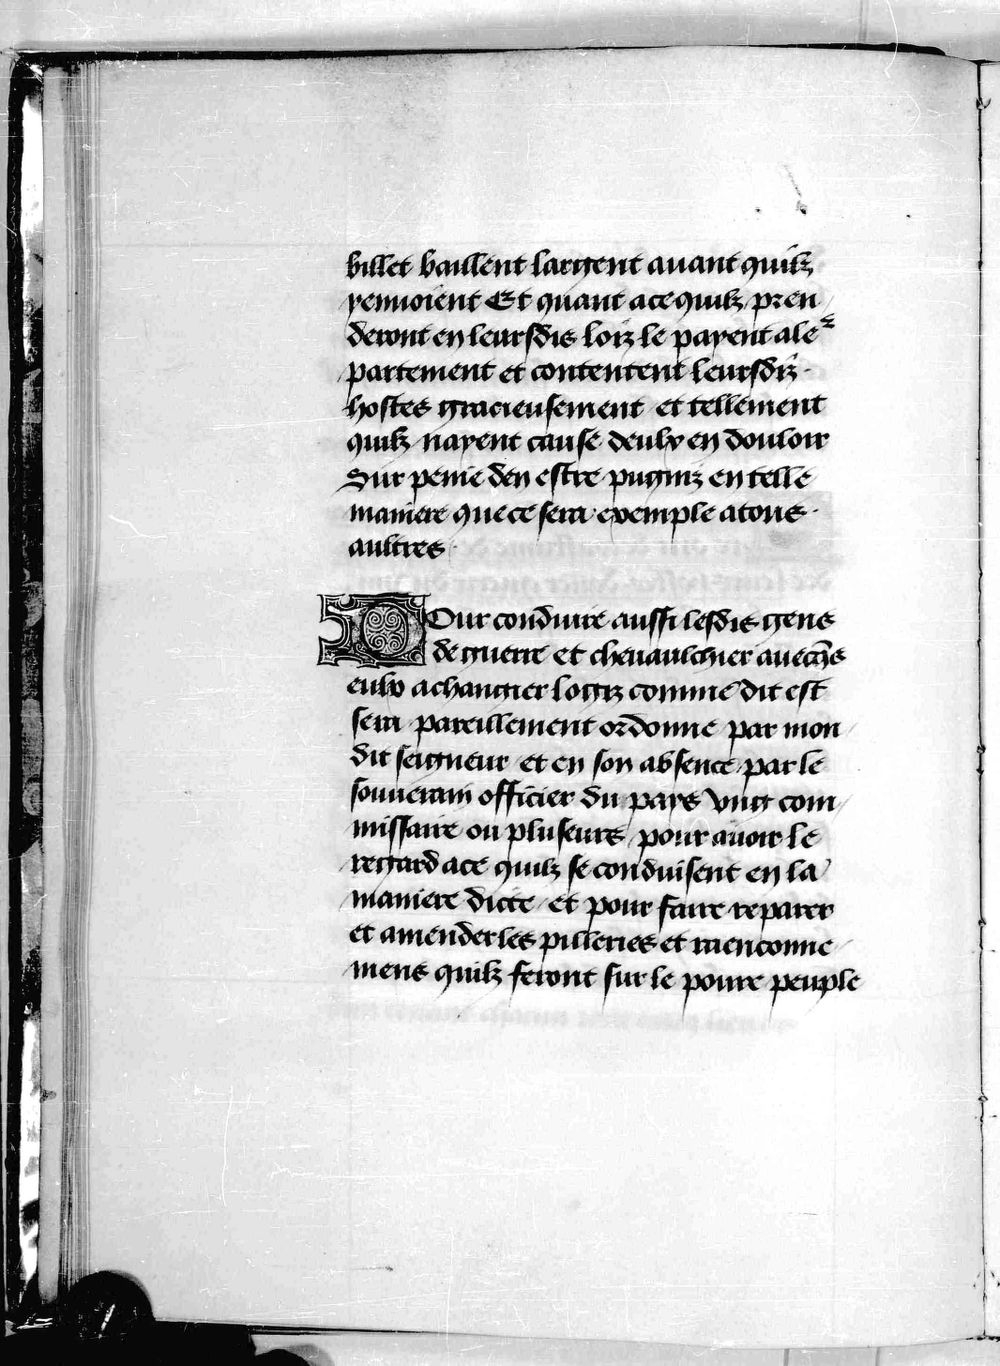 billet baillent largent auant quilz
renuoient Et quant ace quilz pren
deront en leursdis loiz le payent ale
partement et contentent leursdiz
hostes gracieusement et tellement
quilz nayent cause deulx en douloir
Sur peine den estre pugniz en telle
maniere que ce sera exemple a tous
aultres
Pour conduire aussi lesdis gens
de guerre et cheuaulchier auecques
eulx a changier logiz comme dit est
sera pareillement ordonne par mon
dit seigneur et en son absence par le
souuerain officier du pays vng com
missaire ou pluseurs pour auoir le
regard ace quilz se conduisent en la
maniere dicte et pour faire reparer
et amender les pilleries et raenconne
mens quilz feront sur le poure peuple